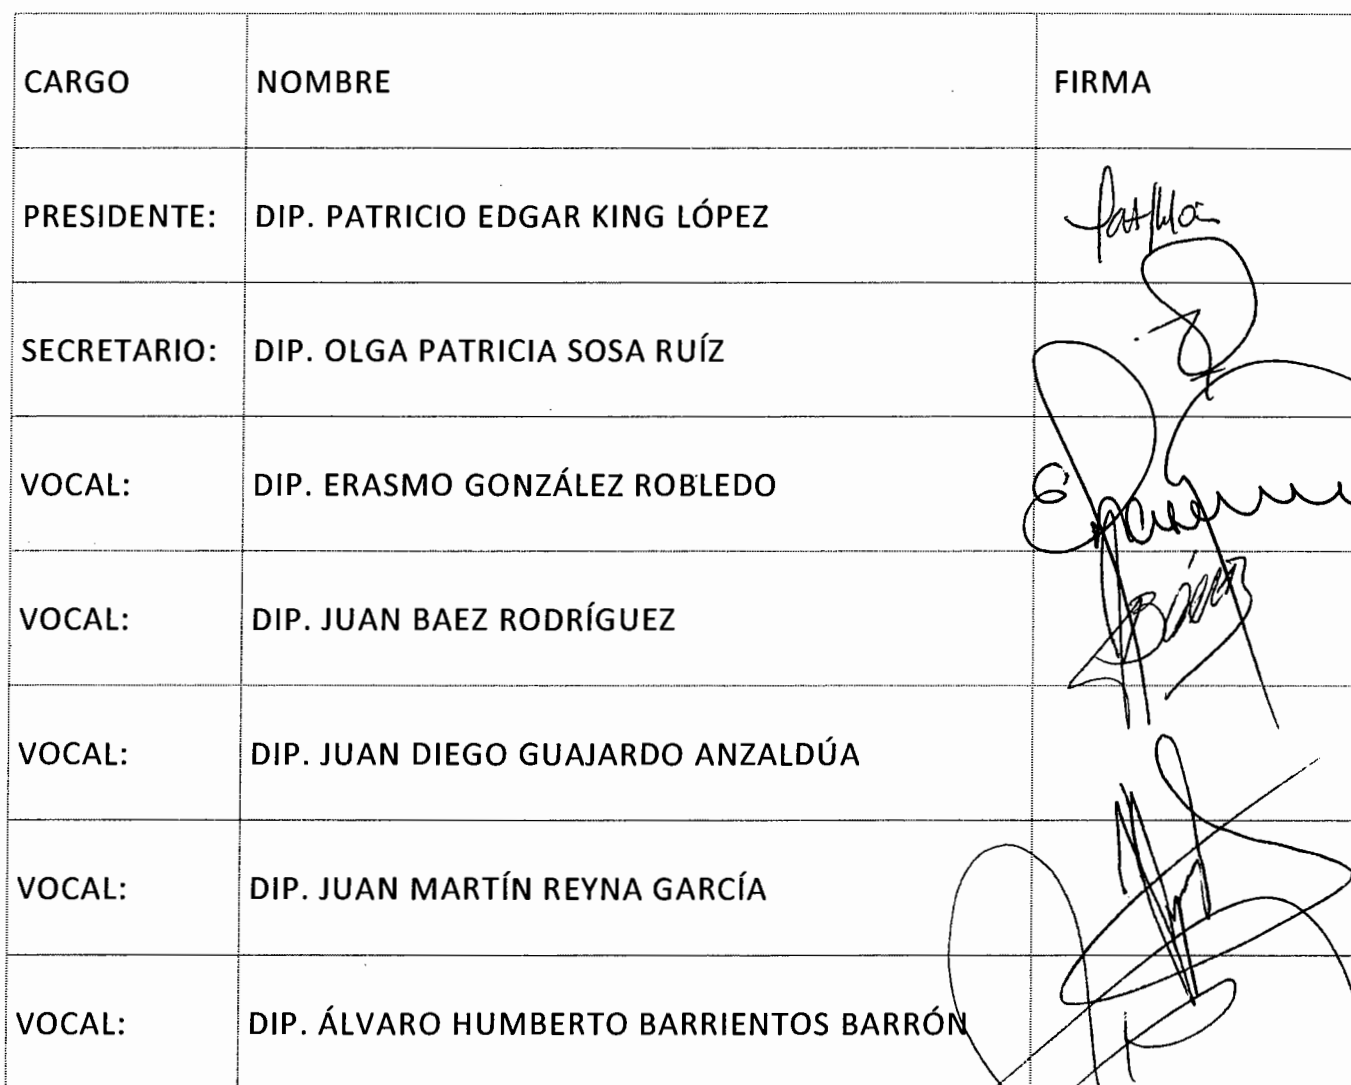 CARGO NOMBRE FIRMA
PRESIDENTE: DIP. PATRICIO EDGAR KING LÓPEZ
SECRETARIO: DIP. OLGA PATRICIA SOSA RUÍZ
VOCAL: DIP. ERASMO GONZÁLEZ ROBLEDO
VOCAL: DIP. JUAN BAEZ RODRÍGUEZ
VOCAL: DIP. JUAN DIEGO GUAJARDO ANZALDÚA
VOCAL: DIP. JUAN MARTÍN REYNA GARCÍA
VOCAL: DIP. ÁLVARO HUMBERTO BARRIENTOS BARRÓN